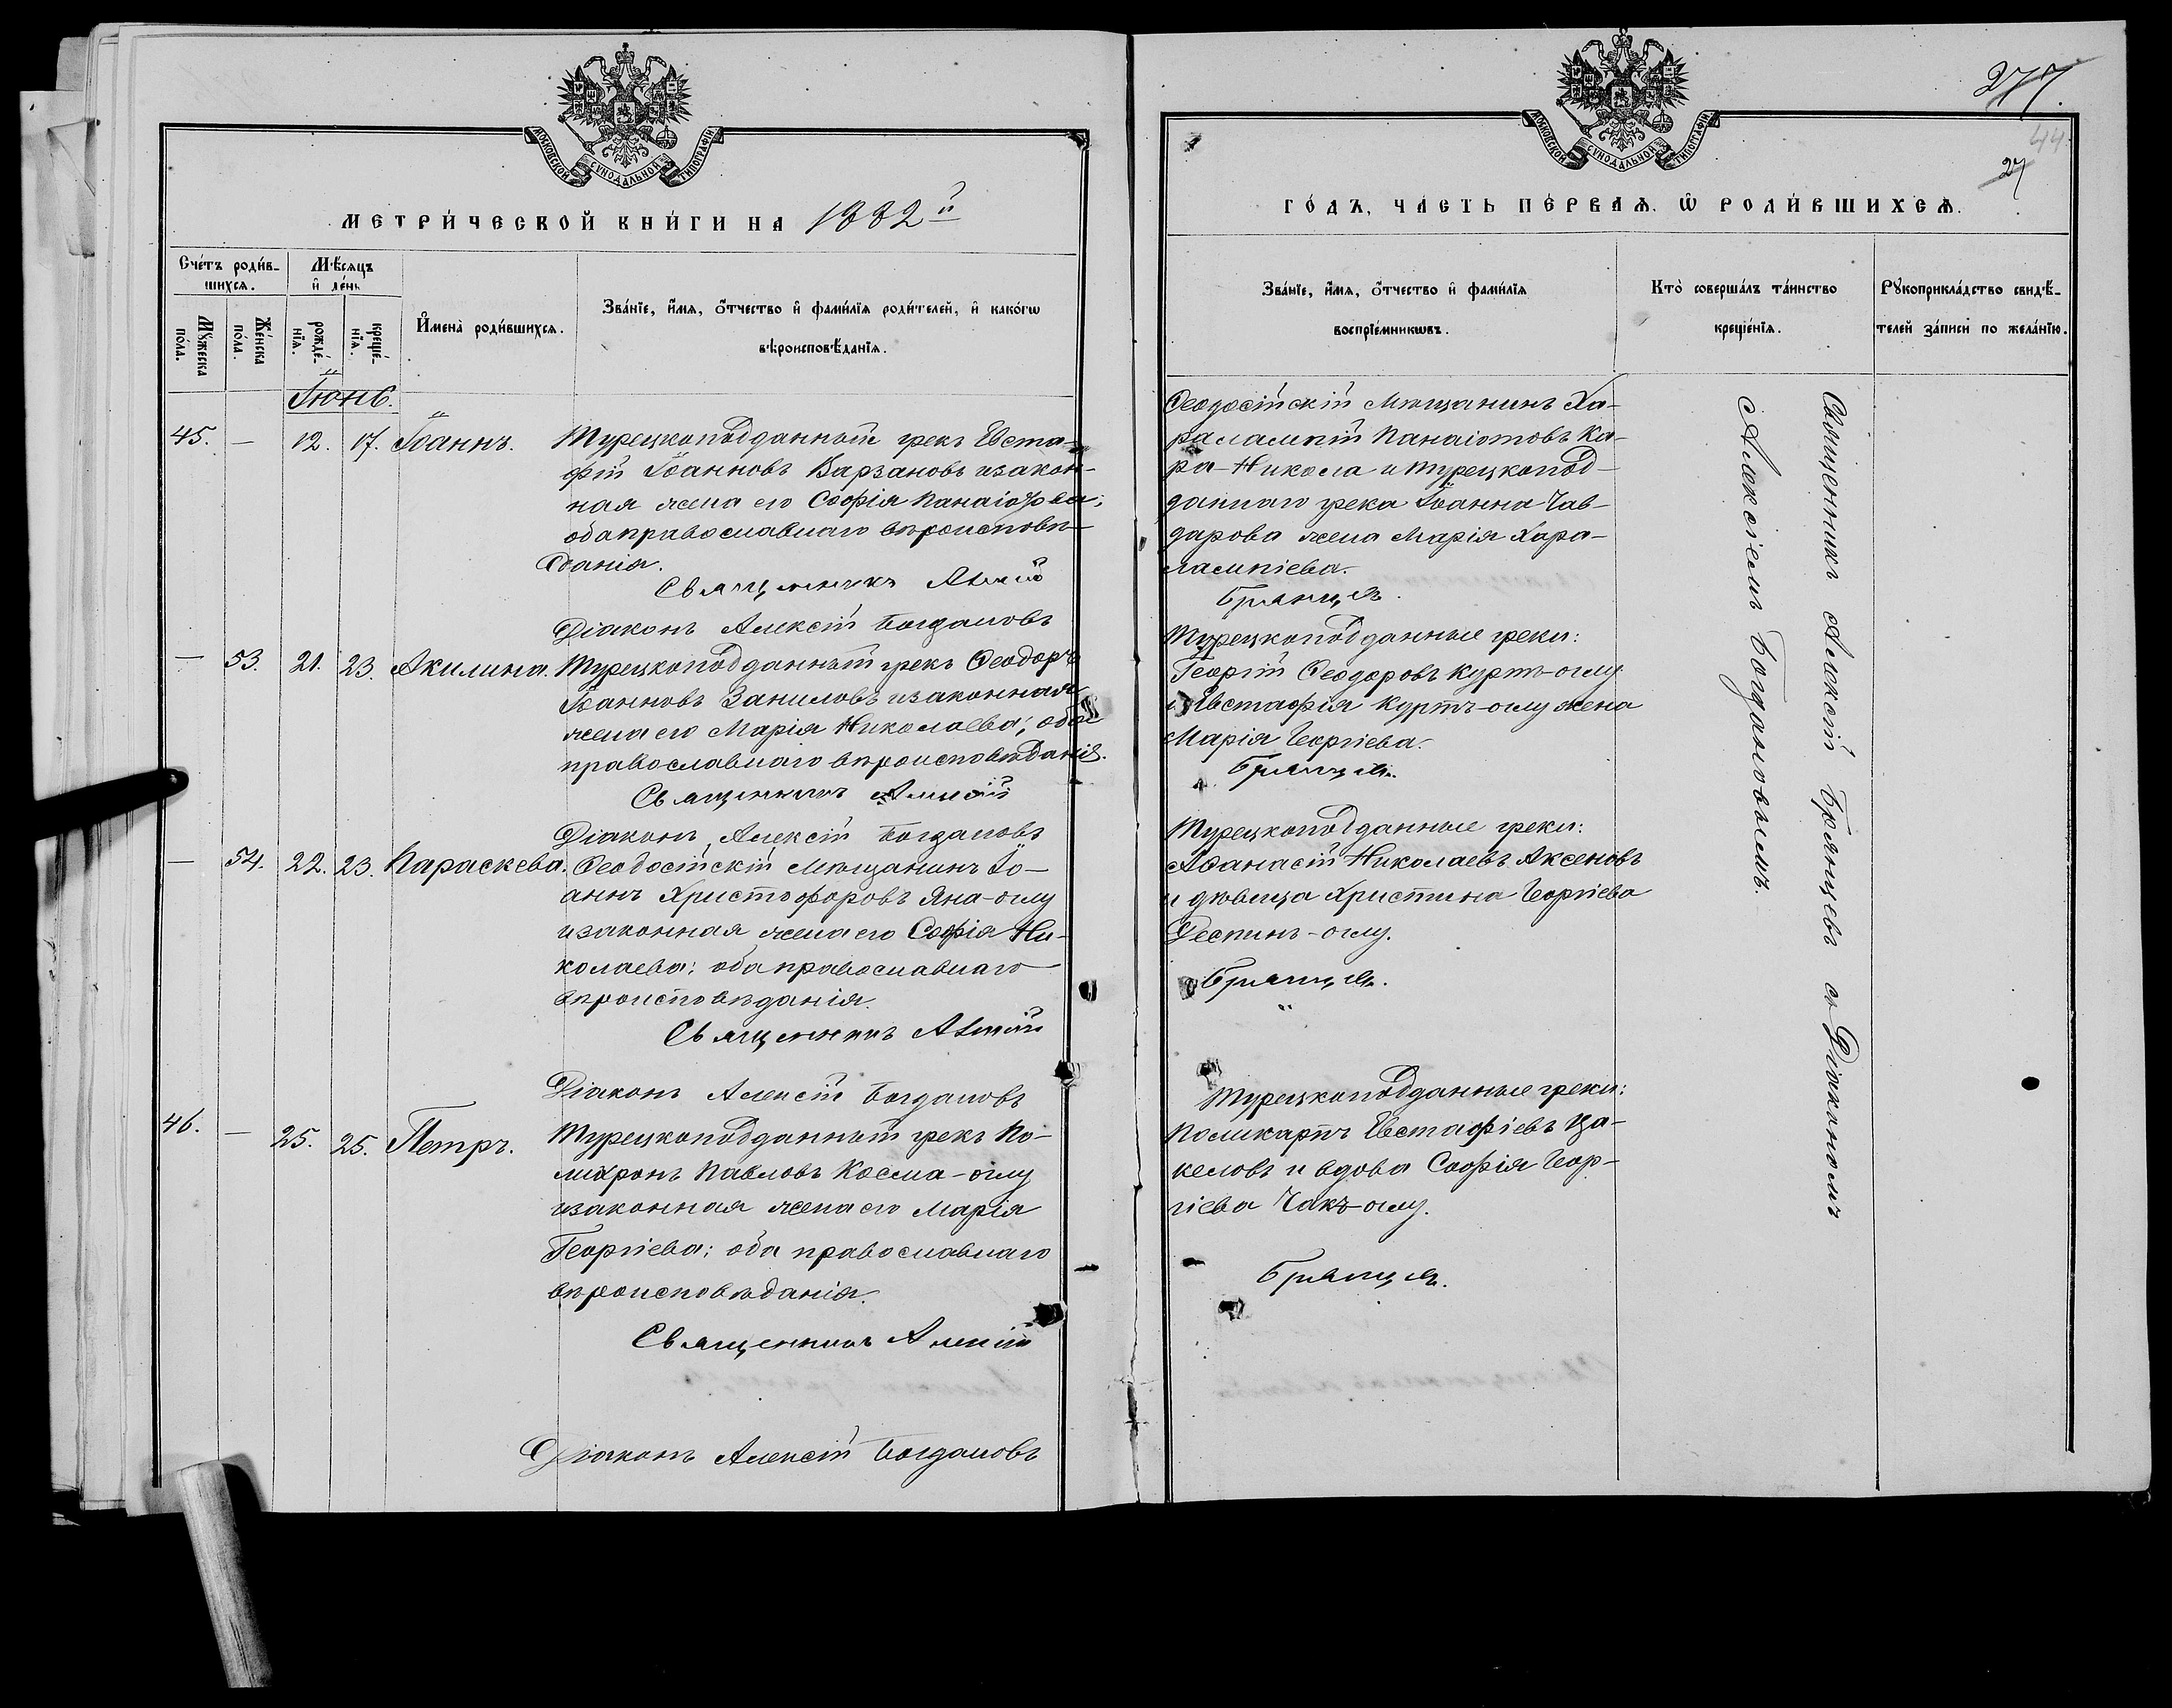 МОСКОВСКОЙ СѴНОДАЛЬНОЙ ТИПОГРАФІИ
МЕТРИ́ЧЕСКОЙ КНИ́ГИ НА 1882й
Сче́тъ роди́в-
шихсѧ.
Мꙋ́жеска
по́ла.
Же́нска
по́ла.
Мѣ́сѧцъ
и҆ де́нь
рожде́-
нїѧ.
креще́-
нїѧ.
И҆мена̀ роди́вшихсѧ.
Зва́нїе, и҆́мѧ, ѻ҆́тчество и҆ фами́лїѧ роди́телей, и҆ како́гѡ
вѣроисповѣ́данїѧ.
Іюнь.
45. — 12. 17. Іоаннъ.
Турецкоподданный грекъ Евста-
фій Іоанновъ Варзановъ и закон-
ная жена его Софія Панаіотова;
оба православнаго вѣроисповѣ-
данія.
Священникъ Алексій
Діаконъ Алексій Богдановъ
— 53. 21. 23. Акилина.
Турецкоподданный грекъ Ѳеодоръ
Іоанновъ Заниловъ и законная
жена его Марія Николаева; оба
православнаго вѣроисповѣданія.
Священникъ Алексій
Діаконъ Алексій Богдановъ
— 54. 22. 23. Параскева.
Ѳеодосійскій мѣщанинъ Іо-
аннъ Христофоровъ Яна-оглу
и законная жена его Софія Ни-
колаева; оба православнаго
вѣроисповѣданія.
Священникъ Алексій
Діаконъ Алексій Богдановъ
46. — 25. 25. Петръ.
Турецкоподданный грекъ По-
лихронъ Павловъ Косма-оглу
и законная жена его Марія
Георгіева; оба православнаго
вѣроисповѣданія.
Священникъ Алексій
Діаконъ Алексій Богдановъ
277.
44.
27
МОСКОВСКОЙ СѴНОДАЛЬНОЙ ТИПОГРАФІИ
ГО́ДЪ, ЧА́СТЬ ПЕ́РВАѦ. Ѡ҆ РОДИ́ВШИХСѦ.
Зва́нїе, и҆́мѧ, ѻ҆́тчество и҆ фами́лїѧ
воспрїе́мникѡвъ.
Кто̀ соверша́лъ та́инство
креще́нїѧ.
Рꙋкоприкла́дство свидѣ́-
телей за́писи по жела́нїю.
Ѳеодосійскій мѣщанинъ Ха-
ралампій Панаіотовъ Ка-
ра-Никола и турецкопод-
даннаго грека Іоанна Чав-
дарова жена Марія Хара-
лампіева.
Брянцевъ.
Турецкоподданные греки:
Георгій Ѳеодоровъ Куртъ-оглу
и Евстафія Куртъ-оглу жена
Марія Георгіева.
Брянцевъ.
Турецкоподданные греки:
Аѳанасій Николаевъ Аксеновъ
и дѣвица Христина Георгіева
Деспинъ-оглу.
Брянцевъ.
Турецкоподданные греки:
Поликарпъ Евстафіевъ Ца-
келовъ и вдова Софія Геор-
гіева Чакъ-оглу.
Брянцевъ.
Священникъ Алексій Брянцевъ съ Діакономъ
Алексіемъ Богдановымъ.